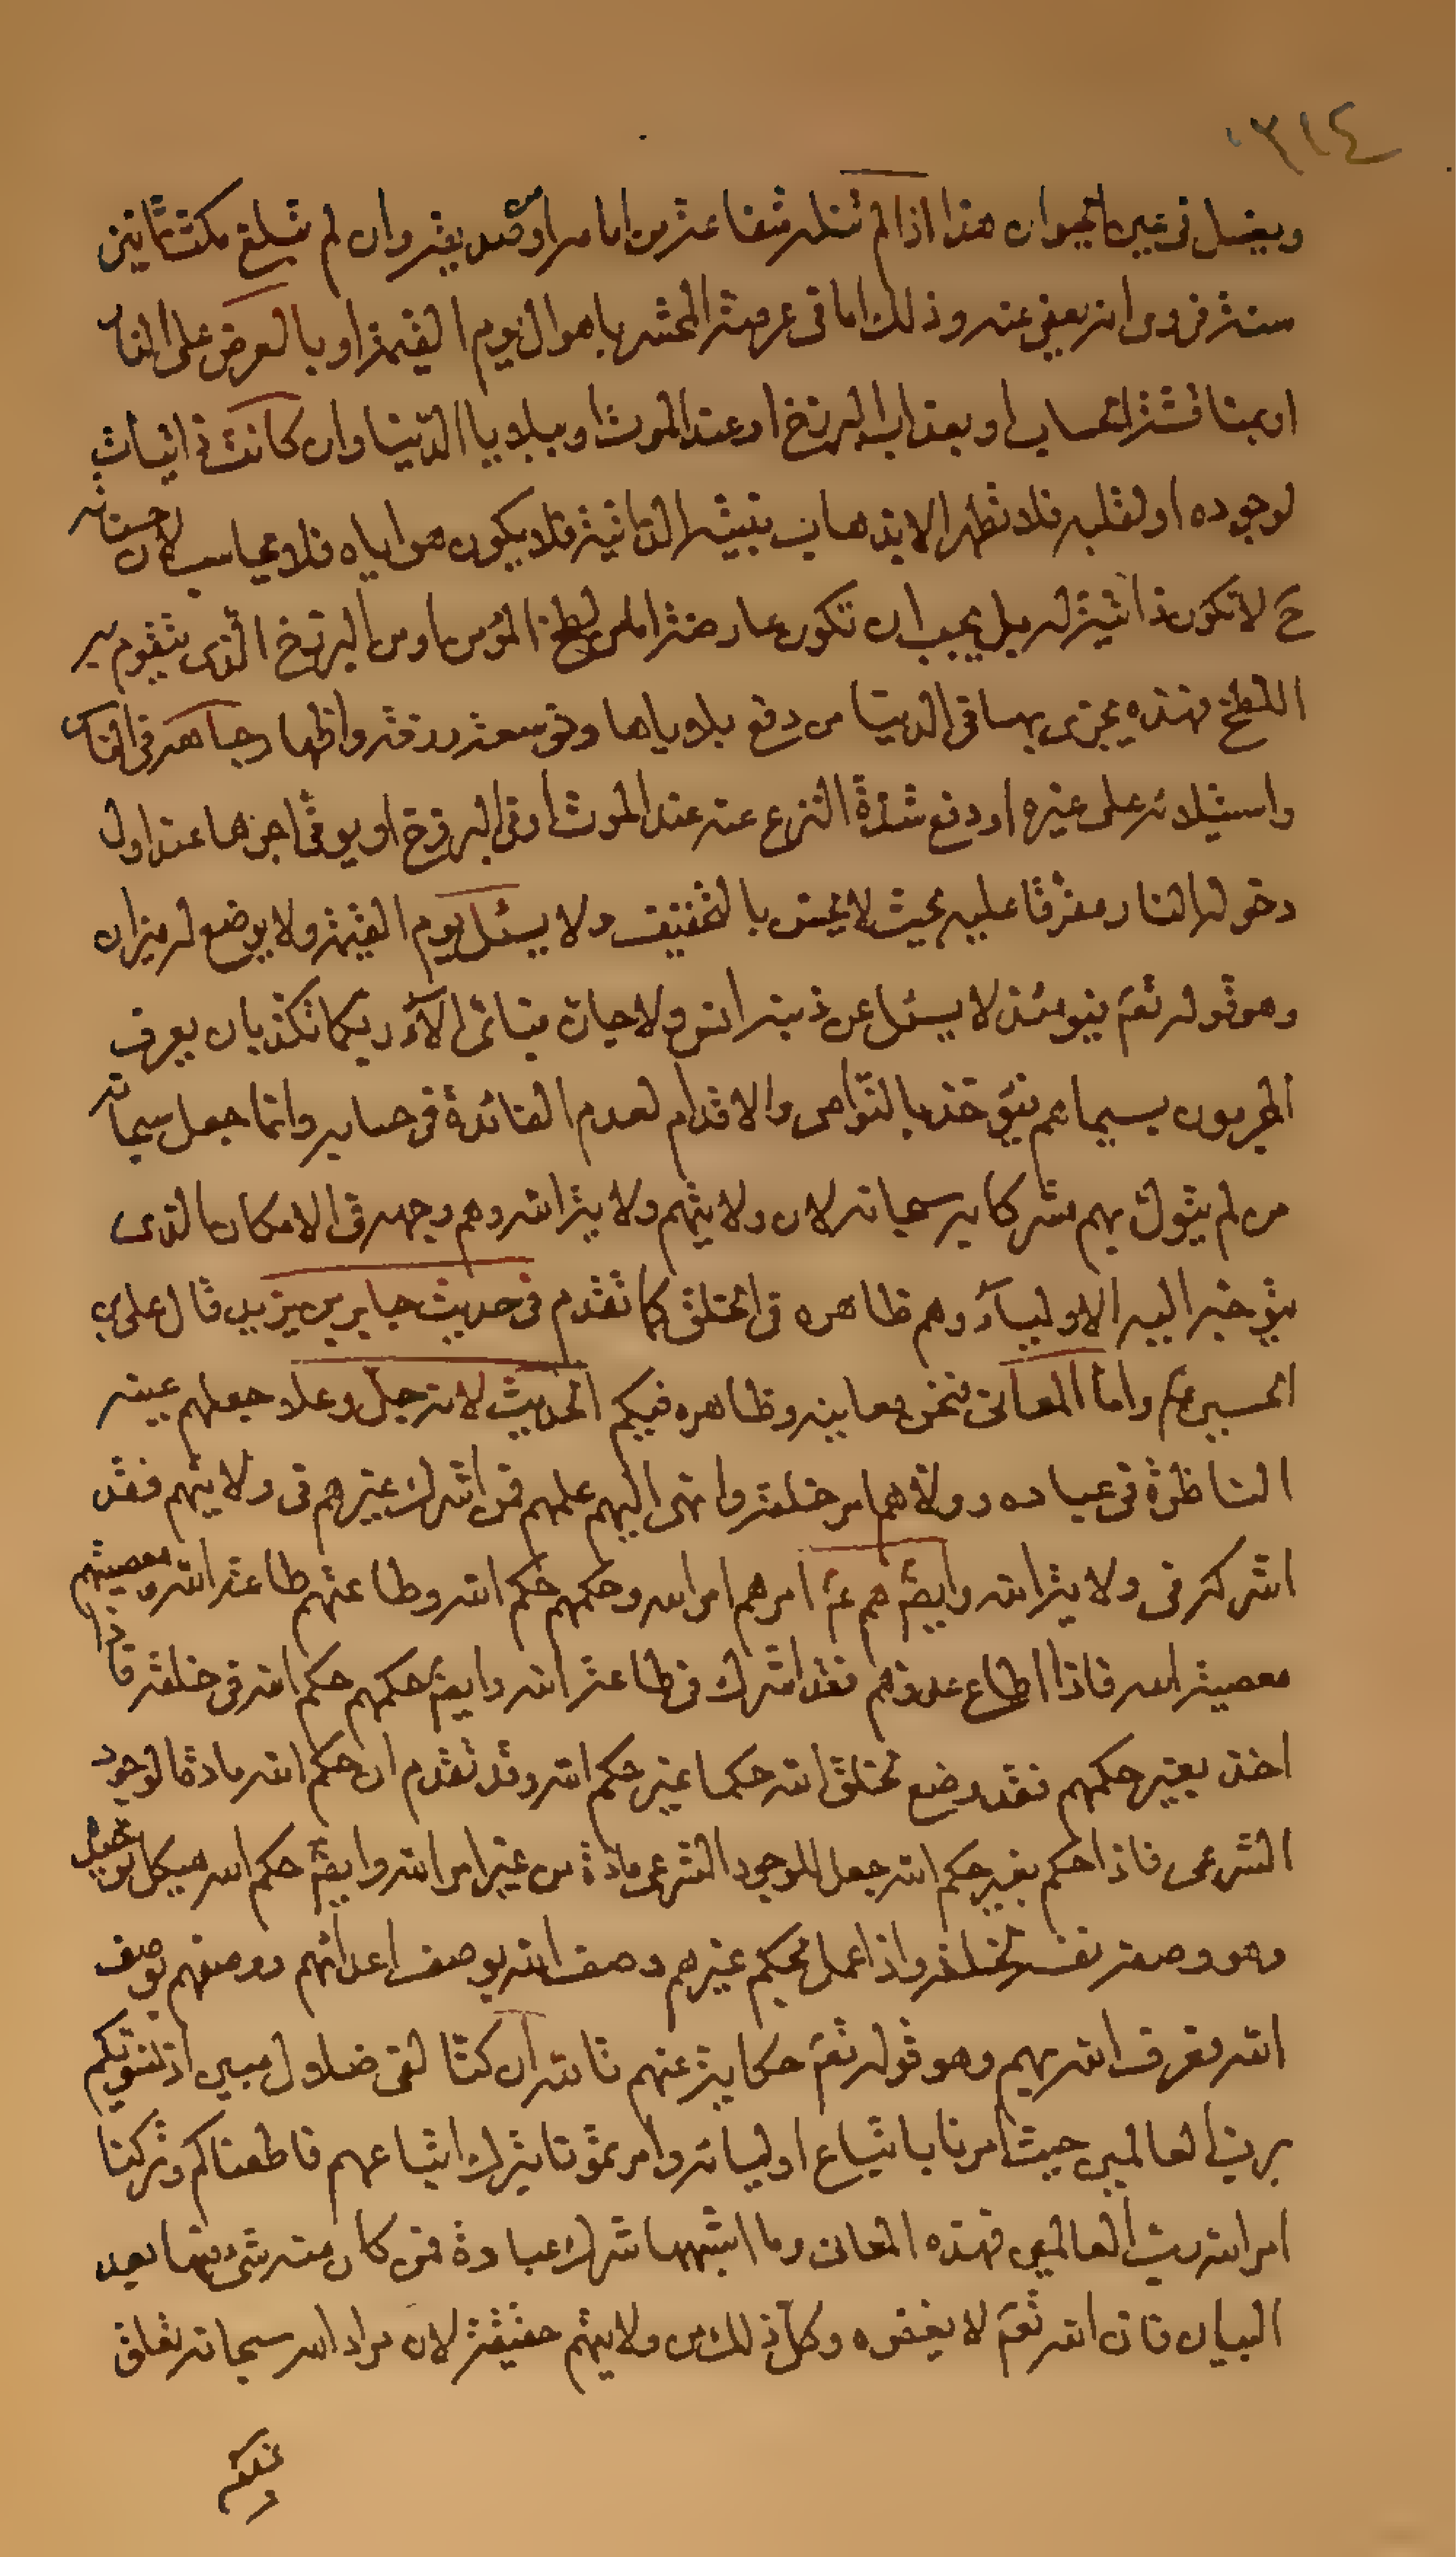 ٣١٤
ويغسل في عين الحيوان هذا اذا لم تنله شفاعة من امامه او صديقه وان لم تبلغ مكث ثمانين
سنة فروى انه يعفى عنه وذلك اما في عرصة المحشر باهوال يوم القيمة او بالعرض على الناس
او بمناقشة الحساب او بعذاب البرزخ او عند الموت او ببلايا الدنيا وان كانت ذاتيات
لوجوده او لقلبه فلا تطهر الا بذهاب بنيته الذاتية فلا يكون هو اياه فلا يحاسب لان حسناته
ح لا تكون ذاتية له بل يجب ان تكون عارضة اما من لطخ المؤمن او من البرزخ الذي يتقوم به
اللطخ فهذه يجزى بها في الدنيا من دفع بلاياها وتوسعة رزقه واظهار جاهه في الناس
واستيلائه على غيره او دفع شدة النزع عنه عند الموت او في البرزخ او يوفى اجرها عند اول
دخوله النار مفرقا عليه بحيث لا يحس بالتخفيف ولا يسئل يوم القيمة ولا يوضع له ميزان
وهو قوله تعم فيومئذ لا يسئل عن ذنبه انس ولا جان فباى الآء ربكما تكذبان يعرف
المجرمون بسيماهم فيؤخذ بالنواصى والاقدام لعدم الفائدة في حسابه وانما جعل سبحانه
من لم يتول بهم مشركا به سبحانه لان ولايتهم ولاية الله وهم وجهه في الامكان الذى
يتوجه اليه الاولياء وهم ظاهره في الخلق كما تقدم في حديث جابر بن يزيد قال على بن
الحسين ع واما المعانى فنحن معانيه وظاهره فيكم الحديث لانه جل وعلا جعلهم عينه
الناظرة في عباده وولاهم امر خلقه وانهى اليهم علمهم فمن اشرك غيرهم في ولايتهم فقد
اشرك في ولاية الله وايضا هم ع امرهم امر الله وحكمهم حكم الله وطاعتهم طاعة الله ومعصيتهم
معصية الله فاذا اطاع عدوهم فقد اشرك في طاعة الله وايضا حكمهم حكم الله في خلقه فاذا
اخذ بغير حكمهم فقد وضع لخلق الله حكما غير حكم الله وقد تقدم ان حكم الله مادة الوجود
الشرعى فاذا حكم بغير حكم الله جعل للوجود الشرعى مادة من غير امر الله وايضا حكم الله هيكل توحيده
وهو وصفه نفسه لخلقه واذا عمل بحكم غيرهم وصف الله بوصف اعدائهم ووصفهم بوصف
الله فعرف الله بهم وهو قوله تعم حكاية عنهم تالله ان كنا لفى ضلال مبين اذ نسويكم
برب العالمين حيث امرنا باتباع اوليائه وامرتمونا بترك اتباعهم فاطعناكم وتركنا
امر الله رب العالمين فهذه المعانى وما اشبهها شرك عبادة فمن كان منه شئ منها بعد
البيان فان الله تعم لا يغفره وكل ذلك من ولايتهم حقيقة لان مراد الله سبحانه تعلق